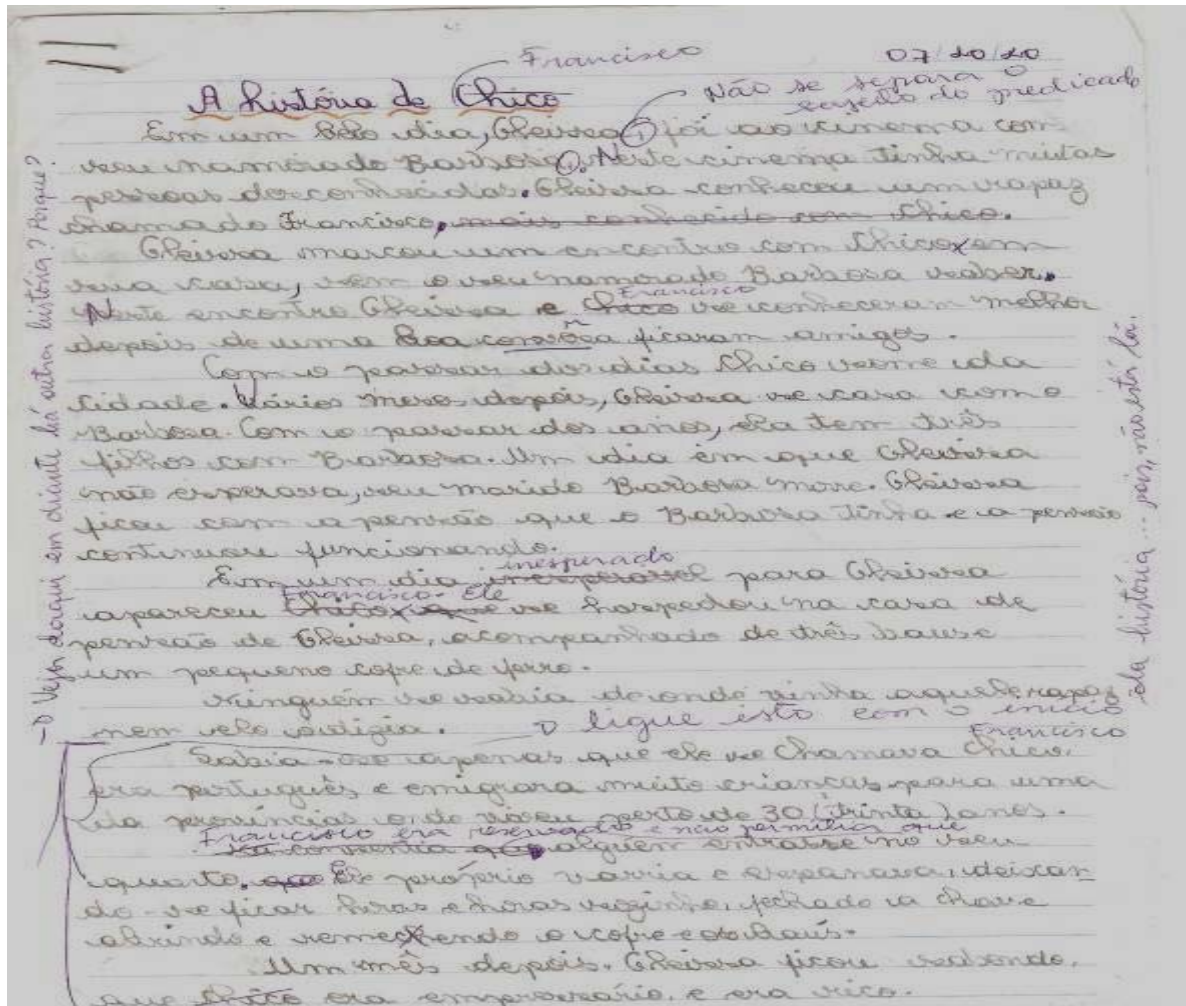 Francisco
07/10/10
A história de Chico
Não se separa o
sujeito do predicado
Em um belo dia, Gleissa, foi ao cinema com
seu namorado Barbosa. Neste cinema tinha muitas
pessoas desconhecidas. Gleissa conheceu um rapaz
chamado Francisco, mais conhecido com Chico.
Gleissa marcou um encontro com Chico x em
sua casa, sem o seu namorado Barbosa saber.
Francisco
Neste encontro Gleissa e Chico se conheceram melhor
depois de uma boa ficaram amigos.
Com o passar dos dias Chico some da
cidade. Vários meses depois, Gleissa se casa com o
Barbosa. Com o passar dos anos, ela tem três
filhos com Barbosa. Um dia em que Gleissa
não esperava, seu marido Barbosa morre. Gleissa
ficou com a pensão que o Barbosa tinha e a pensão
continuou funcionando.
inesperado
Em um dia para Gleissa
Francisco. Ele
apareceu Chico x que se hospedou na casa de
pensão de Gleissa, acompanhado de três baus e
um pequeno cofre de ferro.
Ninguém se sabia de onde vinha aquele rapaz
nem velo
ligue isto com o início
da história ... pois, não está lá.
Francisco
Sabia-se apenas que ele se chamava Chico,
era português e emigrara muito crianças para uma
da províncias onde viveu perto de 30 (trinta) anos.
Francisco era reservado e não permitia que
consentia que alguém entrasse no seu
quarto. que Ele próprio varria e espanava, deixan
do-se ficar horas e horas sozinho, fechado a chave
abrindo e remexendo o cofre e os baús.
Um mês depois. Gleissa ficou sabendo.
que Chico era empresário. e era rico.
Veja daqui em diante há outra história? Porque?